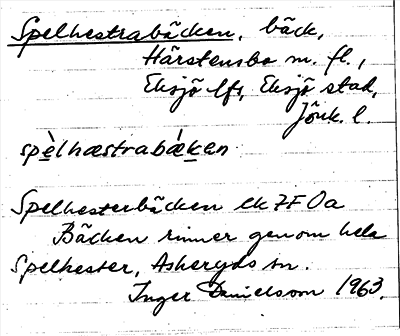 Spelhestrabäcken, bäck,
Härstensbo m. fl.,
Eksjö lfs, Eksjö stad,
Jönk. l.
spèlhæstrabǽken
Spelhesterbäcken ek 7F 0a
Bäcken rinner genom hela
Spelhester, Askeryds sn.
Inger Danielsson 1963.